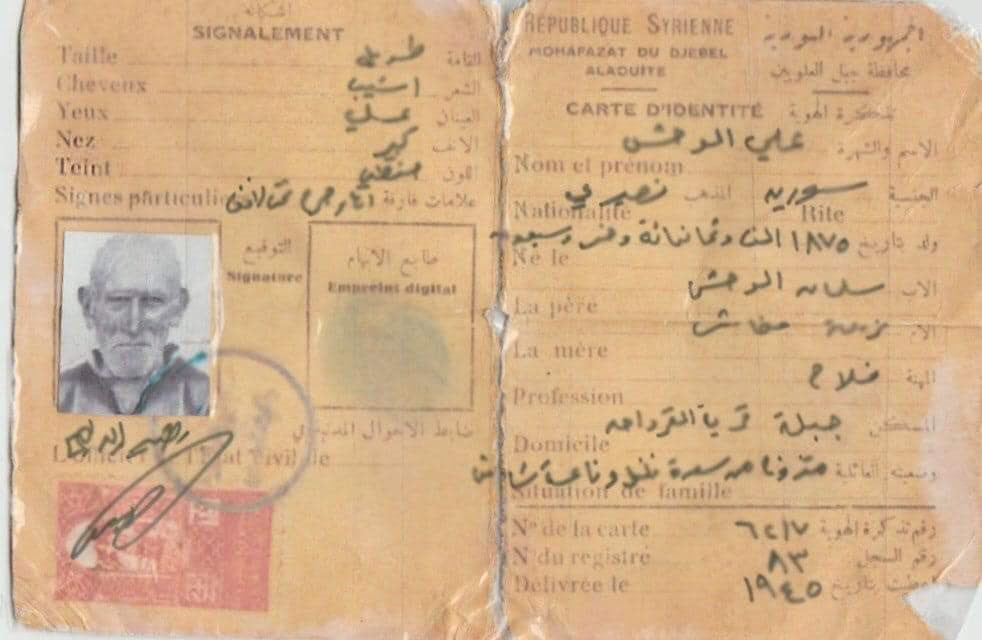 اشكاله
SIGNALEMENT
Taille طويل القامة
Cheveux اشيب الشعر
Yeux عسلي العينان
Nez كبير الانف
Teint حنطي اللون
Signes particuliers علامات فارقة
التوقيع
Signature
طابع الابهام
Empreint digital
ضابط الاحوال المدنية
L'officier l'Etat Civil de
RÉPUBLIQUE SYRIENNE الجمهورية السورية
MOHAFAZAT DU DJEBEL ALAOUITE محافظة جبل العلويين
CARTE D'IDENTITÉ تذكرة الهوية
علي الوحش الاسم والشهرة
Nom et prénom
الجنسية سورية المذهب نصيري
Nationalité Rite
ولد بتاريخ ١٨٧٥ الف وثمانمائة وخمس وسبعون
Né le
الاب سلمان الوحش
La père
الام
La mère
المهنة فلاح
Profession
المسكن جبلة قرية القرداحة
Domicile
وضعيته العائلية
Situation de famille
N° de la carte رقم تذكرة الهوية
N° du registré ٨٣ رقم السجل
Délivrée le ١٩٤٥ اعطيت بتاريخ